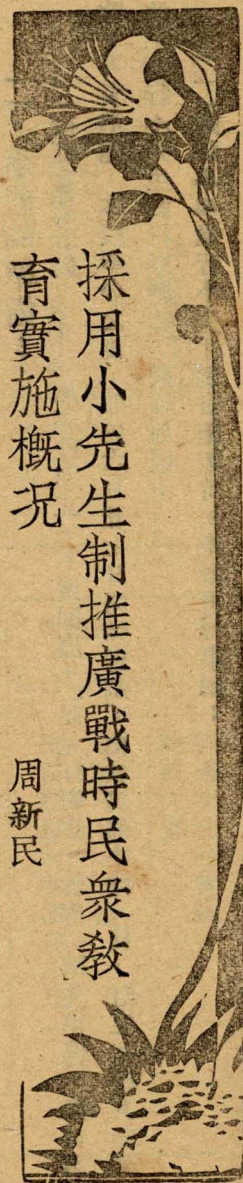 採用小先生制推廣戰時民衆敎
育實施槪况
周新民